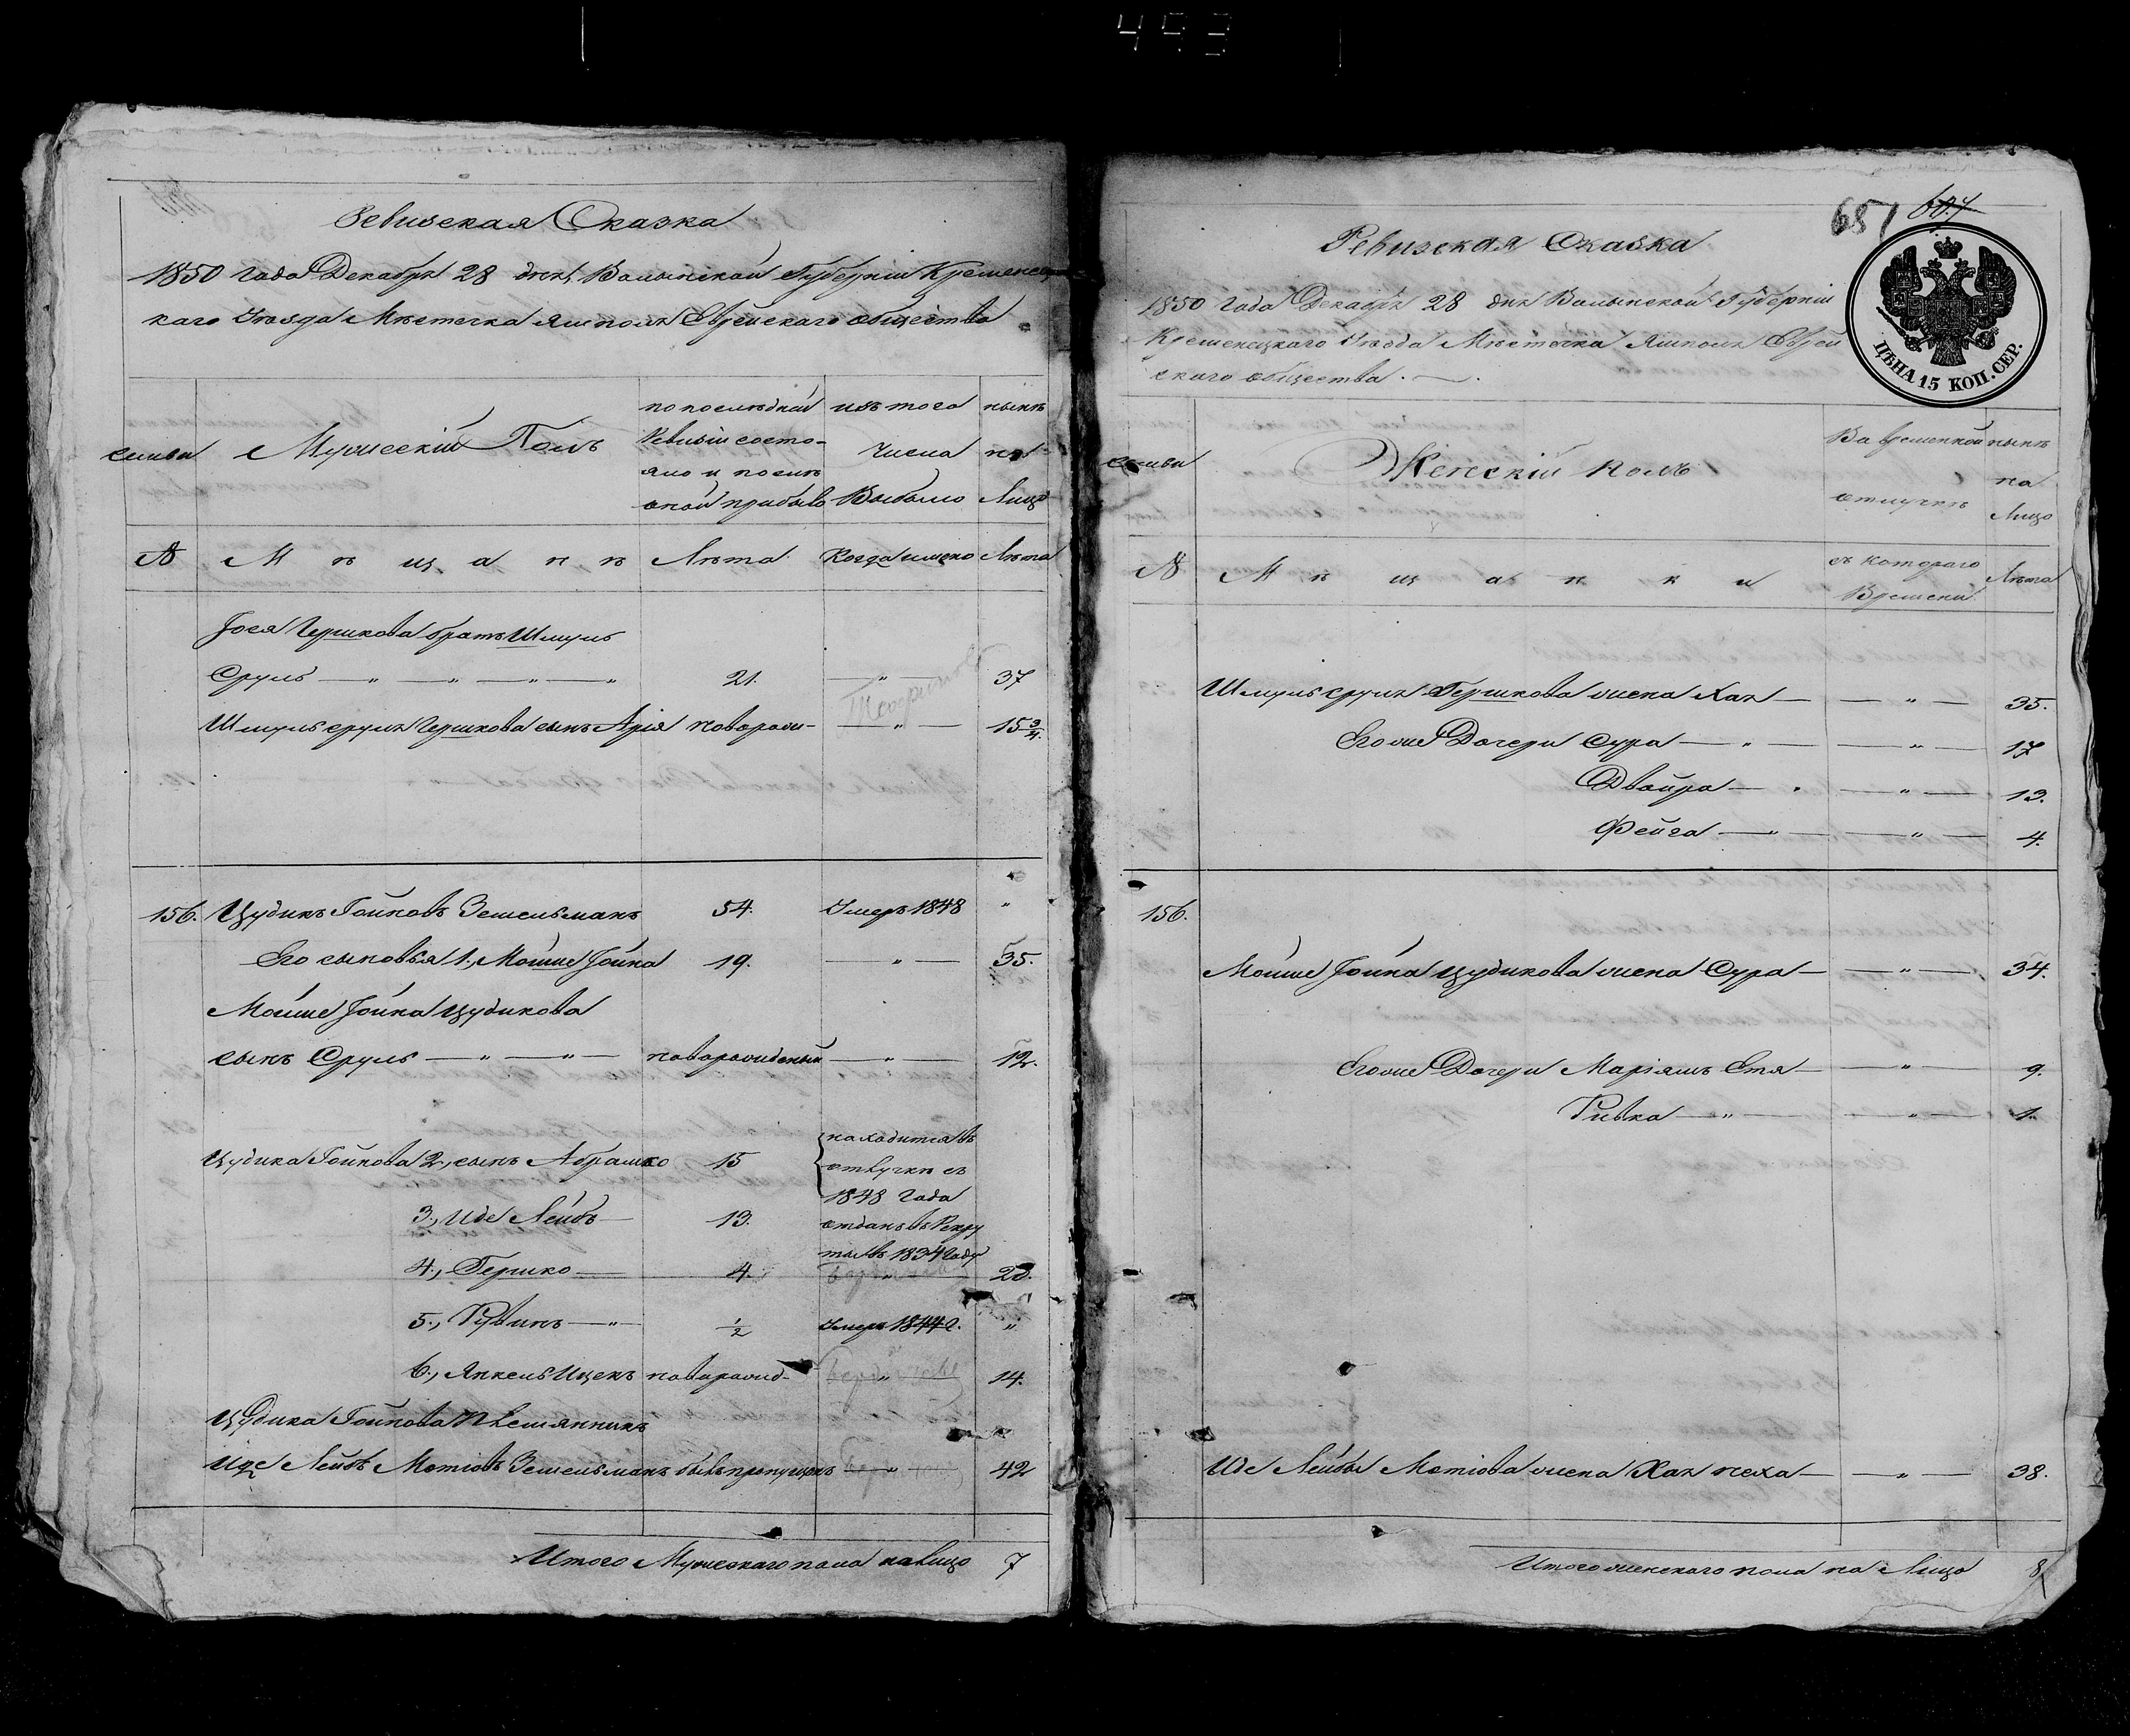 493
Ревизская Сказка
1850 года Декабря 28 дня, Волынской Губернiи Кременец
каго Уѣзда Мѣстечка Ямполя Еврейскаго общества
семьи
Мужескiй Полъ
по послѣдней
Ревизiи состо-
яло и послѣ
оной прибыло
изъ того
числа
Выбыло
нынѣ
на
Лицо
№
М ѣ щ а н ѣ
Лѣта
Когда имено
Лѣта
Iося Гершкова братъ Шмуль
Сруль — " — " — " — " 21. — " — 37
Шмуль сруля Гершкова сынъ Арiя новорожд- — " — 15 3/4.
156. Цудикъ Гойновъ Зетельманъ 54. Умеръ 1848 "
Его сыновья 1, Мойше Iойна 19. — " — 35.
Мойше Iойна Цудикова
сынъ Сруль — " — " — новорожденый — " — 12.
Цудика Гойнова 2, сынъ Абрамко 15 находится въ
отлучкѣ съ
1848 года
3, Иде Лейбъ — 13. отданъ въ Рекру
ты въ 1834 году
4, Гершко — 4. "
5, Рувинъ — " 1/2 Умеръ 1844 г. "
6, Янкель Ицекъ новорожд- " 14.
Цудика Гойнова племянникъ
Иде Лейбъ Мотiовъ Зетельманъ былъ пропущенъ — " — 42
Итого Мужескаго пола на лицо 7
651 607
Ревизская Сказка
1850 года Декабря 28 дня Волынской Губернiи
Кременецкаго Уѣзда Мѣстечка Ямполя Еврей
скаго общества.
ЦѢНА 15 КОП. СЕР.
семьи
Женскiй полъ
Во временной
отлучкѣ
нынѣ
на
Лицо
№
М ѣ щ а н к и
съ котораго
Времени
Лѣта
Шмуль сруля Гершкова жена Хая — — " — 35.
Его же Дочери Сура — " — — " — 17
Двойра — " — " — 13.
Фейга — " — — " — 4.
156.
Мойше Iойна Цудикова жена Сура — — " — 34.
Его же Дочери Марiямъ Стя — — " — 9.
Ривка — " — — " — 1.
Иде Лейбы Мотiова жена Хая неха — — " — 38.
Итого женскаго пола на Лицо 8